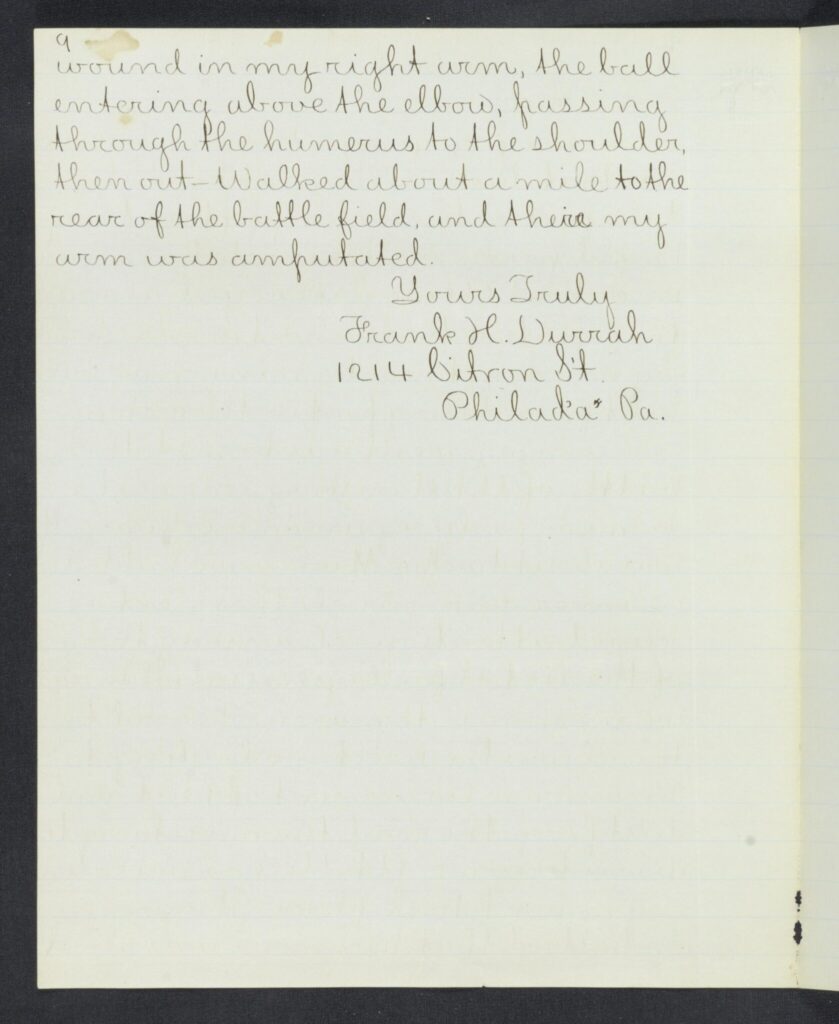 9
wound in my right arm, the ball
entering above the elbow, passing
through the humerus to the shoulder,
then out- Walked about a mile to the
rear of the battle field, and there my
arm was amputated.
Yours Truly
Frank H. Durrah
1214 Citron St.
Philad'a" Pa.